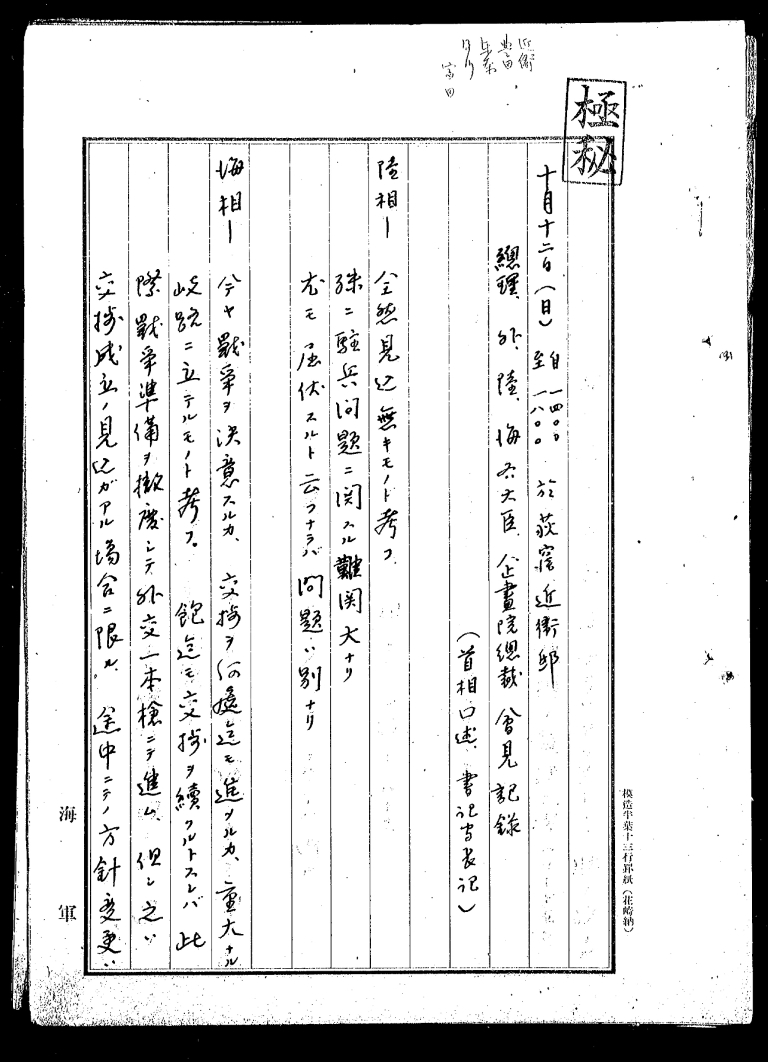 近衛
豊田
東条
及川
富田
極秘
十月十二日（日）自一四〇〇至一八〇〇 於荻窪近衛邸
總理、外、陸、海各大臣、企畫院總裁 會見記錄
（首相口述、書記官長記）
陸相ー 全然見込無キモノト考フ
殊ニ駐兵問題ニ関スル難関大ナリ
尤モ屈伏スルト云フナラバ問題ハ別ナリ
海相ー 今ヤ戰爭ヲ決意スルカ、交捗ヲ何處迄モ進メルカ、重大ナル
岐路ニ立テルモノト考フ。 飽迄モ交捗ヲ續クルトスレバ此
際戰爭準備ヲ撤廢シテ外交一本槍ニテ進ム、但シ之ハ
交捗成立ノ見込ガアル場合ニ限ル、途中ニテノ方針変更ハ
海軍
模造半葉十三行罫紙（花崎納）